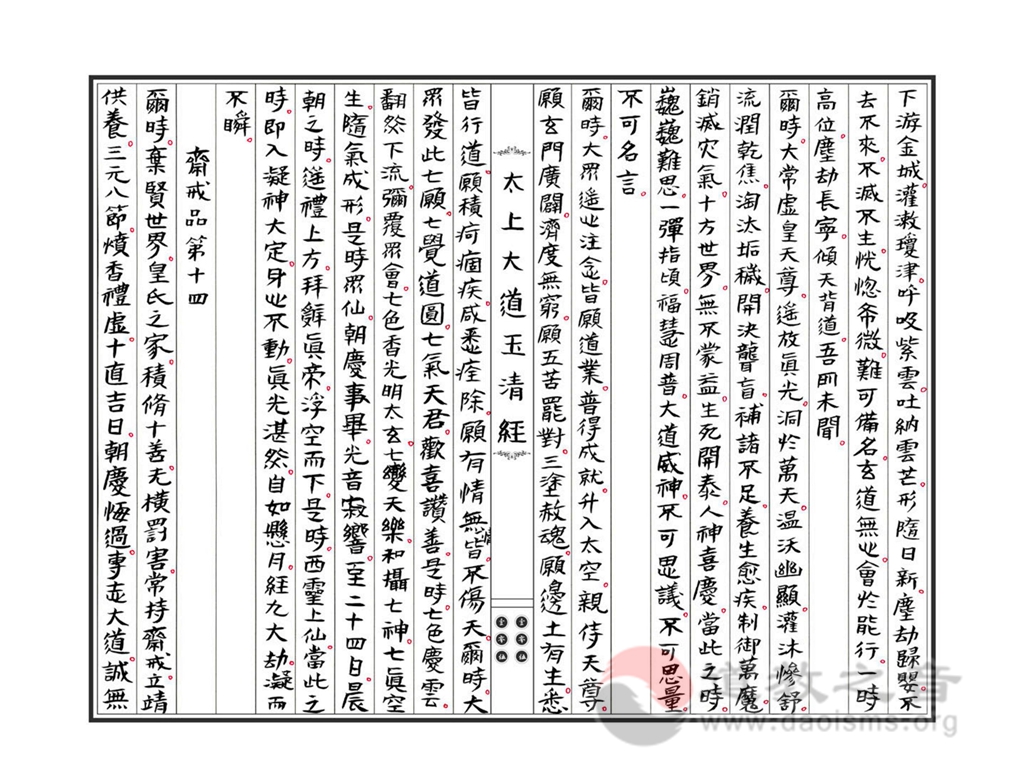 下游金城灌溉瓊津呼吸紫雲吐納雲芒形隨日新塵劫歸嬰不
去不來不滅不生恍惚希微難可備名玄道無心會於能行一時
高位塵劫長寧傾天背道吾所未聞
爾時大常虛皇天尊遙放眞光洞於萬天溫沃幽顯灌沐慘舒
流潤乾焦淘汰垢穢開決聾盲補諸不足養生愈疾制御萬魔
銷滅灾氣十方世界無不蒙益生死開泰人神喜慶當此之時
巍巍難思一彈指頃福慧周普大道威神不可思議不可思量
不可名言
爾時大眾遙心注念皆願道業普得成就升入太空親侍天尊
願玄門廣闢濟度無窮願五苦罷對三塗赦魂願邊土有主悉
太上大道玉清經
皆行道願積疴痼疾咸悉痊除願有情無情皆不傷夭爾時大
眾發此七願七覺道圓七氣天君歡喜讚善是時七色慶雲
翻然下流彌覆眾會七色香光明太玄七變天樂和攝七神七眞空
生隨氣成形是時眾仙朝慶事畢光音寂響至二十四日晨
朝之時遂禮上方拜辭眞帝浮空而下是時西靈上仙當此之
時即入凝神大定身心不動眞光湛然自如懸月經九大劫凝而
不瞬
齋戒品第十四
爾時棄賢世界皇氏之家積脩十善无橫罰害常持齋戒立靖
供養三元八節燌香禮虛十直吉日朝慶悔過專志大道誠無
道教之音
www.daoisms.org